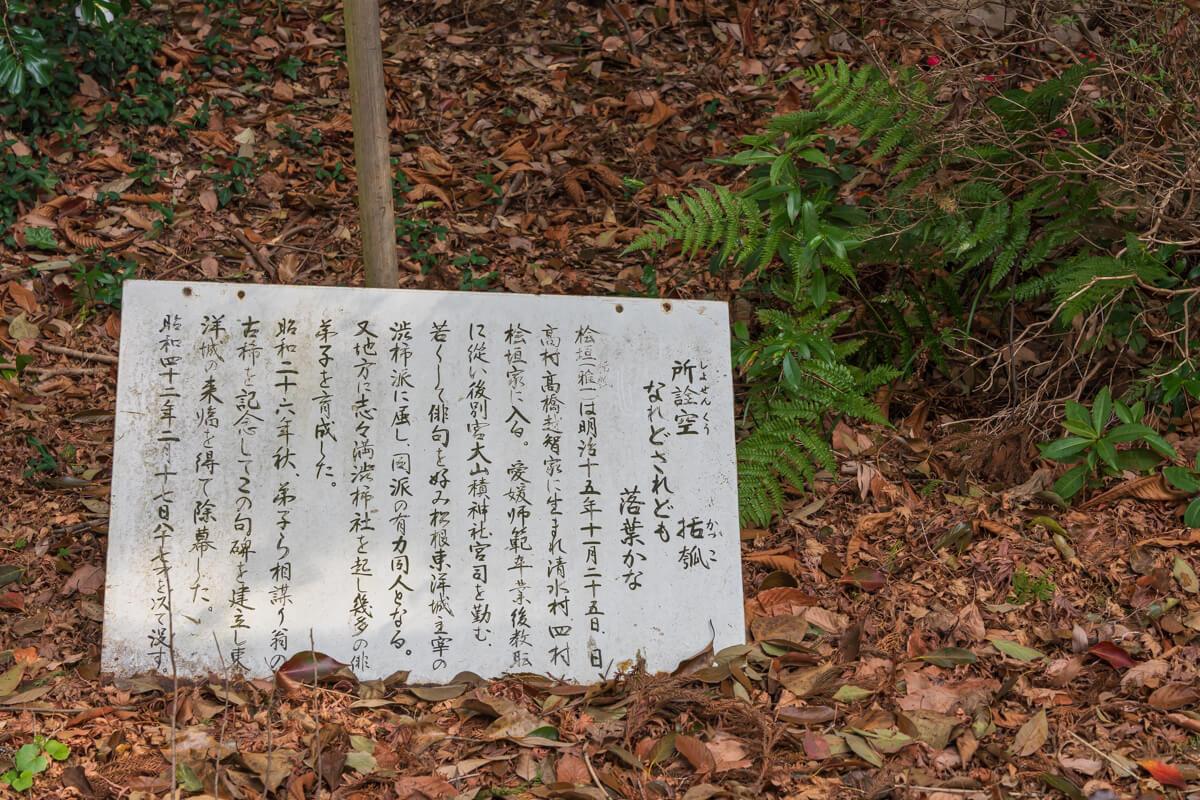 所詮空 括瓠
しょせんくう かつこ
なれどされども
落葉かな
桧垣(雅一)は明治十五年十一月二十五日、日
高村高橋越智家に生まれ清水村四村
桧垣家に入る。愛媛師範卒業後教職
に従い後別宮大山積神社宮司を勤む
若くして俳句を好み松根東洋城主宰の
渋柿派に属し、同派の有力同人となる。
又地方に志々満渋柿社を起し幾多の俳
弟子を育成した。
昭和二十六年秋、弟子ら相謀り翁の
古稀を記念してこの句碑を建立し東
洋城の来臨を得て除幕した。
昭和四十二年二月十七日八十七才を以て没す